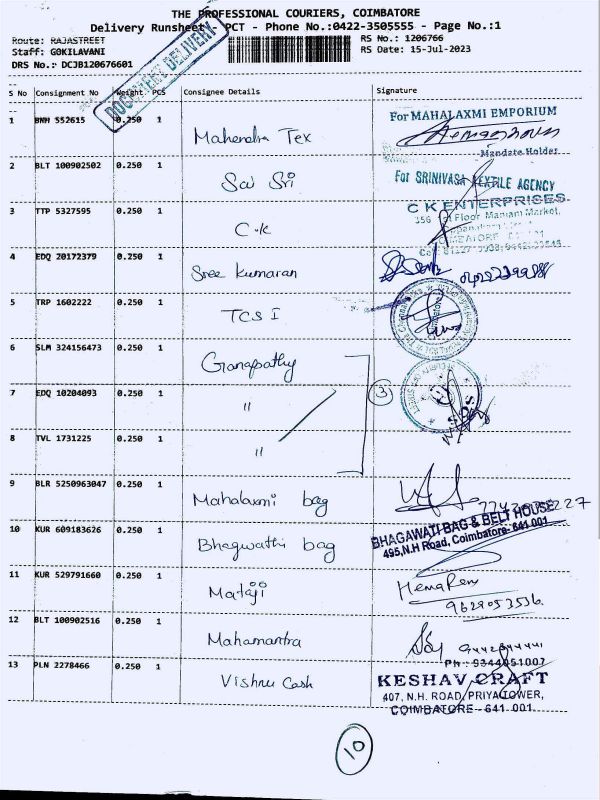 THE PROFESSIONAL COURIERS, COIMBATORE
Delivery Runsheet - PCT - Phone No.:0422-3505555 - Page No.:1
Route: RAJASTREET
RS No.: 1206766
Staff: GOKILAVANI
RS Date: 15-Jul-2023
DRS No.: DCJB120676601
DOCUMENT DELIVERY
S No Consignment No Weight PCS Consignee Details Signature
1 BNM 552615 0.250 1 Mahendra Tex
For MAHALAXMI EMPORIUM
Mandate Holder
2 BLT 100902502 0.250 1 Sai Sri
For SRINIVASA TEXTILE AGENCY
3 TTP 5327595 0.250 1 C.K
C K ENTERPRISES
356 Floor Maniam Market,
4 EDQ 20172379 0.250 1 Sree Kumaran
5 TRP 1602222 0.250 1 TCS I
6 SLM 324156473 0.250 1 Ganapathy
7 EDQ 10204093 0.250 1 "
3
8 TVL 1731225 0.250 1 "
9 BLR 5250963047 0.250 1 Mahalaxmi bag
10 KUR 609183626 0.250 1 Bhagwathi bag
BHAGAWATI BAG & BELT HOUSE
495,N.H Road, Coimbatore- 641 001
11 KUR 529791660 0.250 1 Mataji
HemaRam
9629053536
12 BLT 100902516 0.250 1 Mahamantra
13 PLN 2278466 0.250 1 Vishnu Cash
Ph : 9344051007
KESHAV CRAFT
407, N.H. ROAD, PRIYA TOWER,
COIMBATORE - 641 001.
10